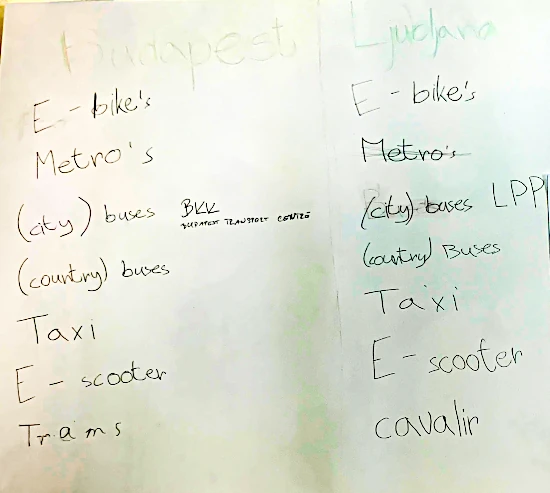 Budapest
E-bike's
Metro's
(city) buses BKK
BUDAPEST TRANSPORT CENTRE
(country) buses
Taxi
E-scooter
Trams
Ljubljana
E-bike's
Metro's
(city) buses LPP
(country) Buses
Taxi
E-scooter
cavalir